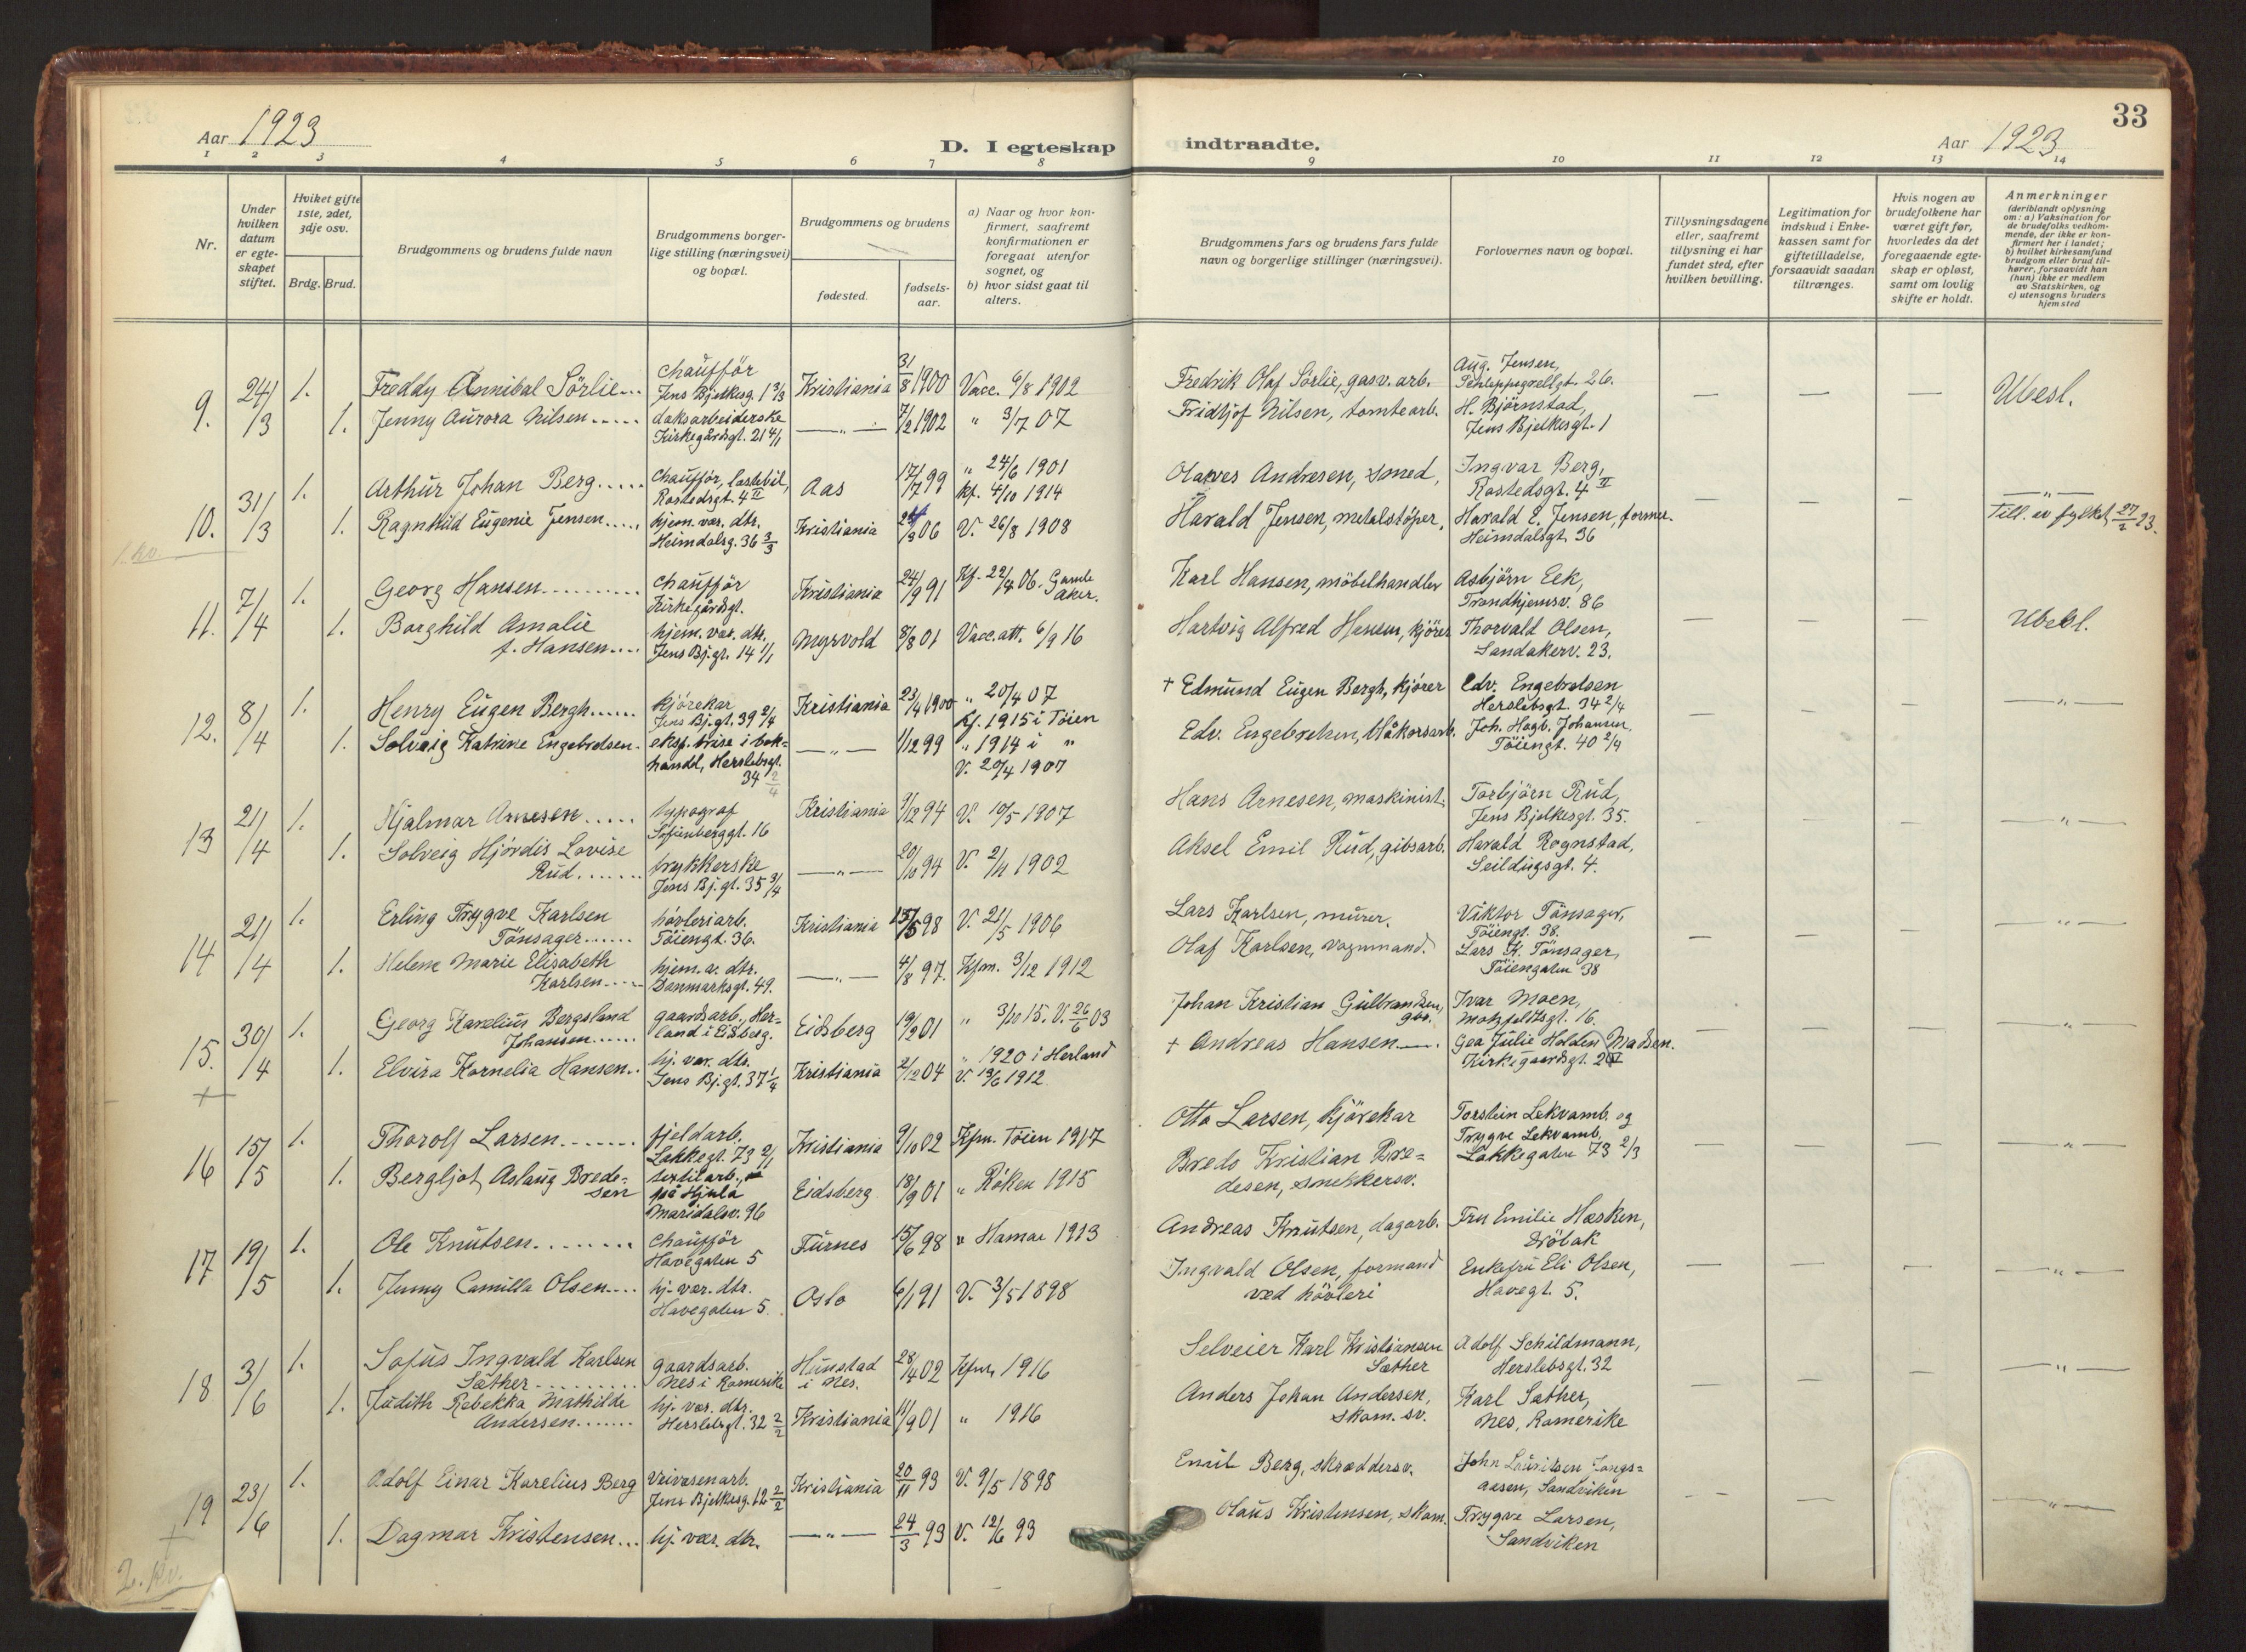 33
Aar 1923
D. I egteskap indtraadte.
Aar 1923
1 2 3 4 5 6 7 8 9 10 11 12 13 14
Nr.
Under hvilken datum er egteskapet stiftet.
Hviket gifte 1ste, 2det, 3dje osv.
Brdg. Brud.
Brudgommens og brudens fulde navn
Brudgommens borgerlige stilling (næringsvei) og bopæl.
Brudgommens og brudens
fødested.
fødselsaar.
a) Naar og hvor konfirmert, saafremt konfirmationen er foregaat utenfor sognet, og
b) hvor sidst gaat til alters.
Brudgommens fars og brudens fars fulde navn og borgerlige stillinger (næringsvei).
Forlovernes navn og bopæl.
Tillysningsdagene eller, saafremt tillysning ei har fundet sted, efter hvilken bevilling.
Legitimation for indskud i Enkekassen samt for giftetilladelse, forsaavidt saadan tiltrænges.
Hvis nogen av brudefolkene har været gift før, hvorledes da det foregaaende egteskap er opløst, samt om lovlig skifte er holdt.
Anmerkninger
(deriblandt oplysning om: a) Vaksination for de brudefolks vedkommende, der ikke er konfirmert her i landet; b) hvilket kirkesamfund brudgom eller brud tilhører, forsaavidt han (hun) ikke er medlem av Statskirken, og c) utensogns bruders hjemsted
9. 24/3 1. Freddy Annibal Sörlie... chaufför Jens Bjelkesg. 1 3/3 Kristiania 31/8 1900 Vacc. 6/8 1902 Fredrik Olaf Sörlie, gasv. arb. Aug. Jensen, 26. — — —
1. Jenny Aurora Nilsen..... Kirkegårdsgt. 21 4/1 —„— 7/2 1902 „ 3/7 07 Fridtjof Nilsen, tomtearb. H. Björnstad, Jens Bjelkesgt. 1
10. 31/3 1. Arthur Johan Berg..... Chauffør, lastebil, Rostedsgt. 4 II Aas 17/7 99 „ 24/6 1901 kf. 4/10 1914 Olaves Andresen, smed, Ingvar Berg, Rostedsgt. 4 II — — — —„—
1. Ragnhild Eugenie Jensen..... hjem. vær. dtr. Heimdalsg. 36 3/3 Kristiania 06 V. 26/8 1908 Harald Jensen, metalstöper, Harald E. Jensen, former. Heimdalsgt. 36 Till. av fylket 27/2 23.
11. 7/4 1. Georg Hansen.......... chauffør Kirkegårdsgt. Kristiania 24/9 91 Kf. 22/4 06. Gamle Aker. Karl Hansen, möbelhandler Asbjörn Eek, Trondhjemsv. 86 — — —
1. Borghild Amalie f. Hansen.... hjem. vær. dtr. Jens Bj.gt. 14 1/1 Myrvold 8/8 01 Vacc. att. 6/9 16 Hartvig Alfred Hansen, kjörer Thorvald Olsen, Sandakerv. 23.
12. 8/4 1. Henry Eugen Bergh...... kjörekar Jens Bj.gt. 39 2/4 Kristiania 23/4 1900 „ 20/4 07 Kf. 1915 i Töien + Edmund Eugen Bergh, kjörer Edv. Engebretsen Herslebsgt. 34 2/4 — — — —„—
1. Solveig Katrine Engebretsen. eksp. trise i bokhandel, Herslebsgt. 34 2/4 —„— 1/12 99 „ 1914 i „ V. 20/4 1907 Edv. Engebretsen, blåkorsarb. Joh. Hagb. Johansen, Töiengt. 40 2/4
13 21/4 1. Hjalmar Arnesen..... typograf Sofienberggt. 16 Kristiania 9/12 94 V. 10/5 1907 Hans Arnesen, maskinist. Torbjörn Rud, Jens Bjelkesgt. 35. — — — —„—
1. Solveig Hjördis Lovise Rud....... trykkerske Jens Bj.gt. 35 3/4 —„— 20/10 94 V. 2/11 1902 Aksel Emil Rud, gibsarb. Harald Rognstad, Seildugsgt. 4.
14 21/4 1. Erling Trygve Karlsen Tönsager...... hövleriarb. Töiengt. 36. Kristiania 15/5 98 V. 21/5 1906 Lars Karlsen, murer. Viktor Tönsager, Töiengt. 38. — — — —„—
1. Helene Marie Elisabeth Karlsen.... hjem. v. dtr. Danmarksgt. 49. —„— 4/8 97. Kfm. 3/12 1912 Olaf Karlsen, vognmand. Lars K. Tönsager, Töiengaten 38
15. 30/4 1. Georg Karelius Bergsland Johansen...... gaardsarb., Herland i Eidsberg. Eidsberg 19/2 01 „ 3/10 15. V. 26/6 03 Johan Kristian Gulbrandsen, gbr. Ivar Moen, Motzfeldtsgt. 16. — — — —„—
1. Elvira Kornelia Hansen.. hj. vær. dtr. Jens Bj.gt. 37 1/4 Kristiania 2/12 04 „ 1920 i Herland V. 19/6 1912 + Andreas Hansen —. Gea Julie Holden Madsen. Kirkegaardsgt.
16 15/5 1. Thorolf Larsen....... fjeldarb. Lakkegt. 73 2/1 Kristiania 9/10 02 Kfm. Töien 1917 Otto Larsen, kjörekar Torstein Lekvamb. og Trygve Lekvamb, Lakkegaten 73 2/3 — — — —„—
1. Bergljot Aslaug Bredesen textilarb., på Hjula Maridalsv. 96 Eidsberg 18/9 01 „ Röken 1915 Bredo Kristian Bredesen, snekkersv.
17 19/5 1. Ole Knutsen........ Chaufför Havegaten 5 Furnes 15/6 98 „ Hamar 1913 Andreas Knutsen, dagarb. Fru Emilie Hasken, Dröbak — — — —„—
1. Jenny Camilla Olsen.... hj. vær. dtr. Havegaten 5. Oslo 6/1 91 V. 3/5 1898 Ingvald Olsen, formand ved hövleri Enkefru Eli Olsen, Havegt. 5.
18 3/6 1. Sofus Ingvald Karlsen Sæther......... gaardsarb. Nes i Romerike Hunstad i Nes. 28/4 02 Kfm. 1916 Selveier Karl Kristiansen Sæther Adolf Schildmann, Herslebsgt. 32 — — — —„—
1. Judith Rebekka Mathilde Andersen....... hj. vær. dtr. Herslebsgt. 32 2/2 Kristiania 11/9 01 „ 1916 Anders Johan Andersen, skom. sv. Karl Sæther, Nes, Romerike
19 23/6 1. Adolf Einar Karelius Berg veivæsenarb. Jens Bjelkesg. 12 2/2 Kristiania 20/11 93 V. 9/5 1898 Emil Berg, skræddersv. John Lauritsen Sandviken — — — —„—
1. Dagmar Kristensen... hj. vær. dtr. —„— 24/3 93 V. 12/6 93 Olaus Kristensen, skom. Trygve Larsen, Sandviken
2. kv.